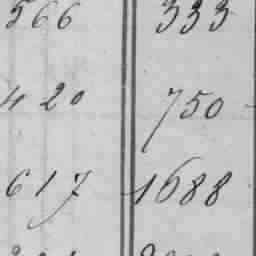 566 333
420 750
617 1688